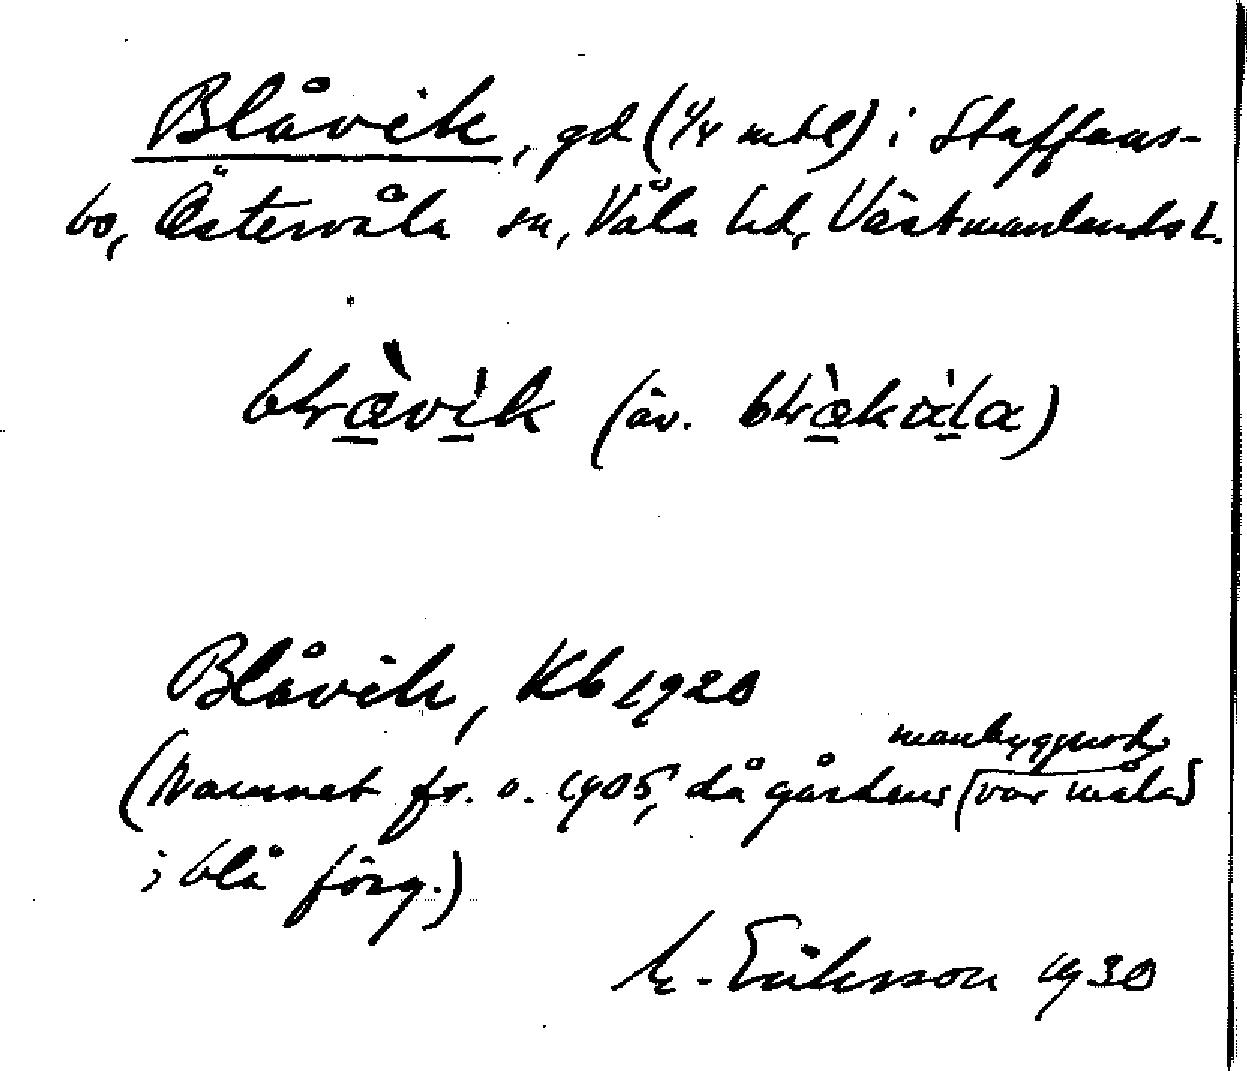 Blåvik, gd (1/4 mtl) i Staffans-
bo, Östervåla sn, Våla hd, Västmanlands l.
(äv.
Blåvik, Kb 1920
manbyggnad
(Namnet fr. o. 1905, då gårdens var målad
i blå färg.)
Eriksson 1930